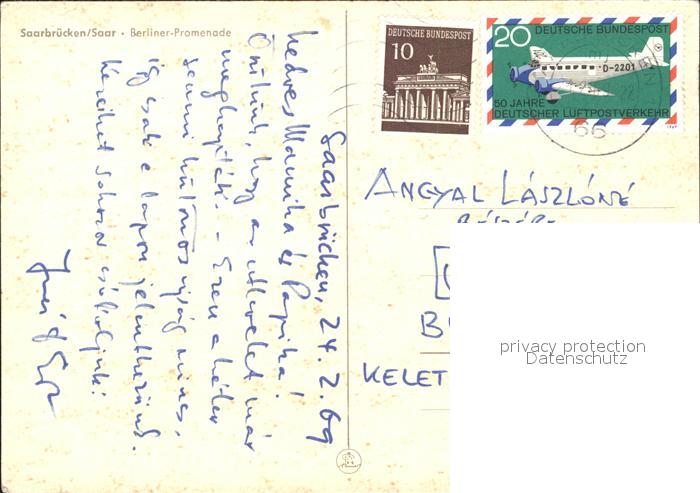 Saarbrücken/Saar • Berliner-Promenade
Saarbrücken, 24. 2. 69
Kedves Mamika és Papika!
Örülünk, hogy az útlevelet már
megkapták. - Ezen a héten
semmi különös újság nincs,
így csak e lapon jelentkezünk.
Kezeiket sokszor csókoljuk:
DEUTSCHE BUNDESPOST
10
DEUTSCHE BUNDESPOST
20
D-2201
50 JAHRE
DEUTSCHER LUFTPOSTVERKEHR
1969
66
ANGYAL LÁSZLÓNÉ
KELET
privacy protection
Datenschutz